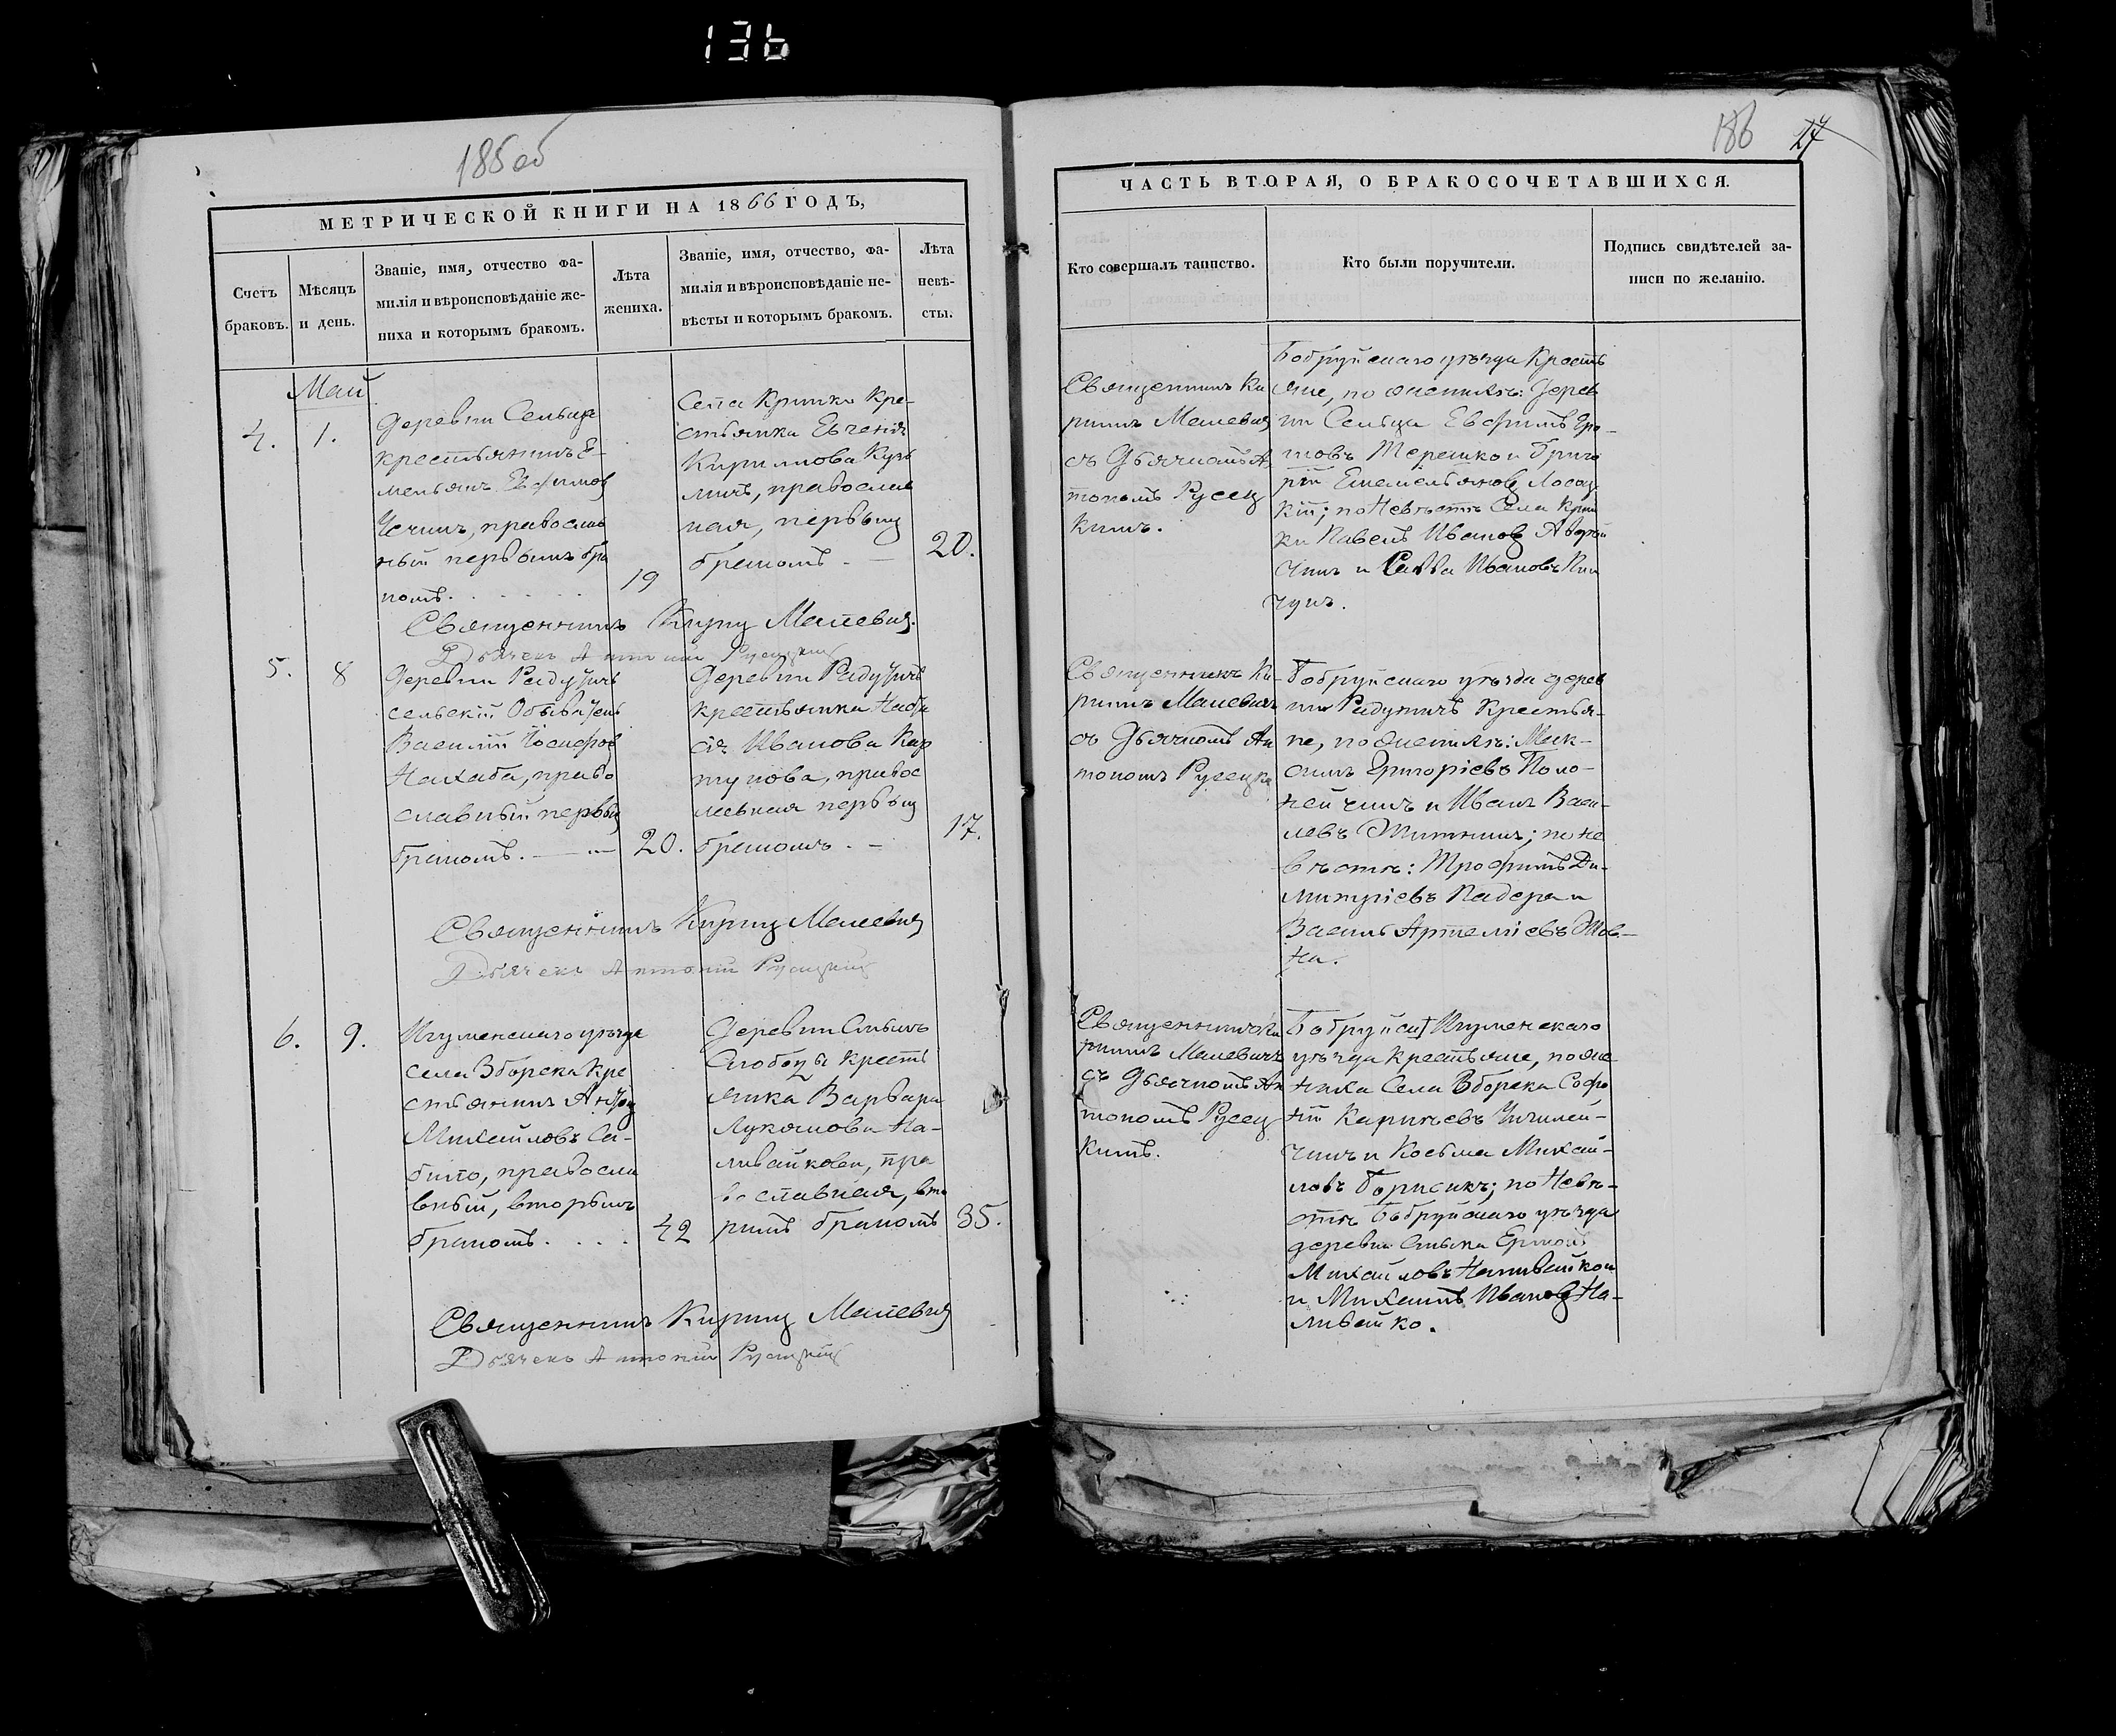 136
185 об
МЕТРИЧЕСКОЙ КНИГИ НА 1866 ГОДЪ,
Счетъ
браковъ.
Мѣсяцъ
и день.
Званіе, имя, отчество фа-
милія и вѣроисповѣданіе же-
ниха и которымъ бракомъ.
Лѣта
жениха.
Званіе, имя, отчество, фа-
милія и вѣроисповѣданіе не-
вѣсты и которымъ бракомъ.
Лѣта
невѣ-
сты.
Май
4.
1.
Деревни Сельца
крестьянинъ Е-
мельянъ Евфимов
православ
ный первымъ бра
комъ.
19
Села Кринки Кре-
стьянка Евгенія
Кириллова Кузь
мичъ, православ
ная, первым
бракомъ. —
20.
Священникъ Кирил Малевич.
Дьячекъ Антоній Русецкій
5.
8
Деревни Радутичъ
сельскій Обыватель
Василій Іосифов
Нахаба, право
славный первым
бракомъ. —
20.
Деревни Радутичъ
крестьянка Наста
сія Иванова Кар
пукова, правос
лавная первым
бракомъ. —
17.
Священникъ Кирил Малевич
Дьячекъ Антоній Русецкій
6.
9.
Игуменскаго уѣзда
села Зборска Кре
стьянинъ Андрей
Михайловъ Са-
било, правосла
вный, вторымъ
бракомъ.
42
Деревни Стыкъ
Слободы крестъ
янка Варвара
Лукьянова На-
ливайкова, пра
вославная, вто
римъ бракомъ
35.
Священникъ Кирил Малевич
Дьячекъ Антоній Русецкій
186
27
ЧАСТЬ ВТОРАЯ, О БРАКОСОЧЕТАВШИХСЯ.
Кто совершалъ таинство.
Кто были поручители.
Подпись свидѣтелей за-
писи по желанію.
Священникъ Ки
рилъ Малевич
съ Дьячкомъ Ан
тономъ Русец
кимъ.
Бобруйскаго уѣзда Кресть
яне, по женихѣ: Дерев
ни Сельца Евфимъ
Терешко и Григо
рій Емельянов Лосад
кій; по Невѣстѣ Села Крин
ки Павелъ Иванов
и Савва Ивановъ Пи
чунъ.
Священникъ Ки-
рилъ Малевичъ
съ Дьячкомъ Ан
тономъ Русецки
Бобруйскаго уѣзда дерев
ни Радутичъ Крестья-
не, по женихѣ: Мак-
симъ Григоріевъ Поло-
нейчикъ и Иванъ Васи-
левъ Житникъ; по не
вѣстѣ: Трофимъ Ди-
митріевъ Падера и
Василь Артеміевъ Жов-
на.
Священникъ Ки
рилъ Малевичъ
съ Дьячкомъ Ан
тономъ Русец
кимъ.
Бобруйск Игуменскаго
уѣзда крестьяне, по же
ниха Села Зборска Софо
ній
и Косьма Михай-
ловъ Борисикъ; по Невѣ-
стѣ Бобруйскаго уѣзда
деревни Стыка Ермолъ
Михайловъ Наливайко
и Михаилъ Иванов На-
ливайко.